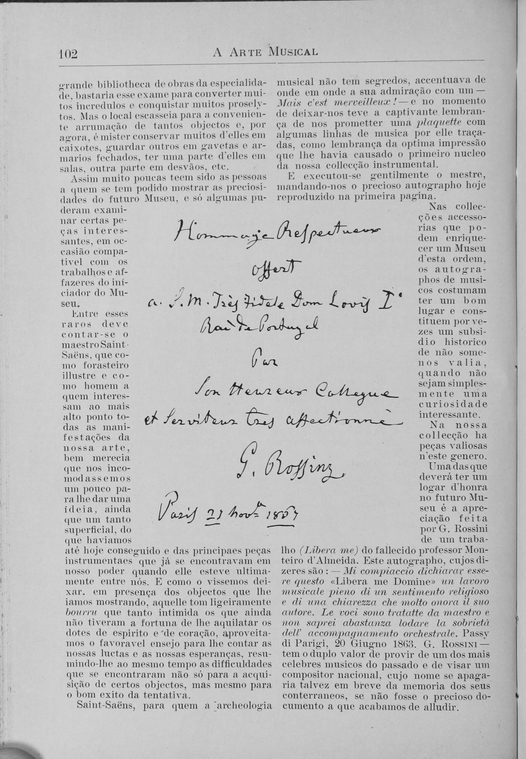 102
A Arte Musical
grande bibliotheca de obras da especialida-
de, bastaria esse exame para converter mui-
tos incredulos e conquistar muitos prosely-
tos. Mas o local escasseia para a convenien-
te arrumação de tantos objectos e, por
agora, é mister conservar muitos d'elles em
caixotes, guardar outros em gavetas e ar-
marios fechados, ter uma parte d'elles em
salas, outra parte em desvãos, etc.
Assim muito poucas teem sido as pessoas
a quem se tem podido mostrar as preciosi-
dades do futuro Museu, e só algumas pu-
deram exami-
nar certas pe-
ças interes-
santes, em oc-
casião compa-
tivel com os
trabalhos e af-
fazeres do ini-
ciador do Mu-
seu.
Entre esses
raros deve
contar-se o
maestro Saint-
Saëns, que co-
mo forasteiro
illustre e co-
mo homem a
quem interes-
sam ao mais
alto ponto to-
das as mani-
festações da
nossa arte,
bem merecia
que nos inco-
modassemos
um pouco pa-
ra lhe dar uma
ideia, ainda
que um tanto
superficial, do
que haviamos
até hoje conseguido e das principaes peças
instrumentaes que já se encontravam em
nosso poder quando elle esteve ultima-
mente entre nós. E como o vissemos dei-
xar, em presença dos objectos que lhe
iamos mostrando, aquelle tom ligeiramente
bourru que tanto intimida os que ainda
não tiveram a fortuna de lhe aquilatar os
dotes de espirito e de coração, aproveita-
mos o favoravel ensejo para lhe contar as
nossas luctas e as nossas esperanças, resu-
mindo-lhe ao mesmo tempo as difficuldades
que se encontraram não só para a acqui-
sição de certos objectos, mas mesmo para
o bom exito da tentativa.
Saint-Saëns, para quem a archeologia
musical não tem segredos, accentuava de
onde em onde a sua admiração com um —
Mais c'est merveilleux! — e no momento
de deixar-nos teve a captivante lembran-
ça de nos prometter uma plaquette com
algumas linhas de musica por elle traça-
das, como lembrança da optima impressão
que lhe havia causado o primeiro nucleo
da nossa collecção instrumental.
E executou-se gentilmente o mestre,
mandando-nos o precioso autographo hoje
reproduzido na primeira pagina.
Nas collec-
ções accesso-
rias que po-
dem enrique-
cer um Museu
d'esta ordem,
os autogra-
phos de musi-
cos costumam
ter um bom
lugar e cons-
tituem por ve-
zes um subsi-
dio historico
de não some-
nos valia,
quando não
sejam simples-
mente uma
curiosidade
interessante.
Na nossa
collecção ha
peças valiosas
n'este genero.
Uma das que
deverá ter um
logar d'honra
no futuro Mu-
seu é a apre-
ciação feita
por G. Rossini
de um traba-
lho (Libera me) do fallecido professor Mon-
teiro d'Almeida. Este autographo, cujos di-
zeres são: — Mi compiaccio dichiarar esse-
re questo «Libera me Domine» un lavoro
musicale pieno di un sentimento religioso
e di una chiarezza che molto onora il suo
autore. Le voci sono trattate da maestro e
non saprei abastanza lodare la sobrietà
dell' accompagnamento orchestrale. Passy
di Parigi, 20 Giugno 1863, G. Rossini —
tem o duplo valor de provir de um dos mais
celebres musicos do passado e de visar um
compositor nacional, cujo nome se apaga-
ria talvez em breve da memoria dos seus
conterraneos, se não fosse o precioso do-
cumento a que acabamos de alludir.
Hommage Respectueux
offert
a. S. M. Très fidele Dom Lovis I°
Roi de Portugal
Par
Son Heureux Collegue
et Serviteur très affectionné
G. Rossini
Paris 21 nov.re 1867